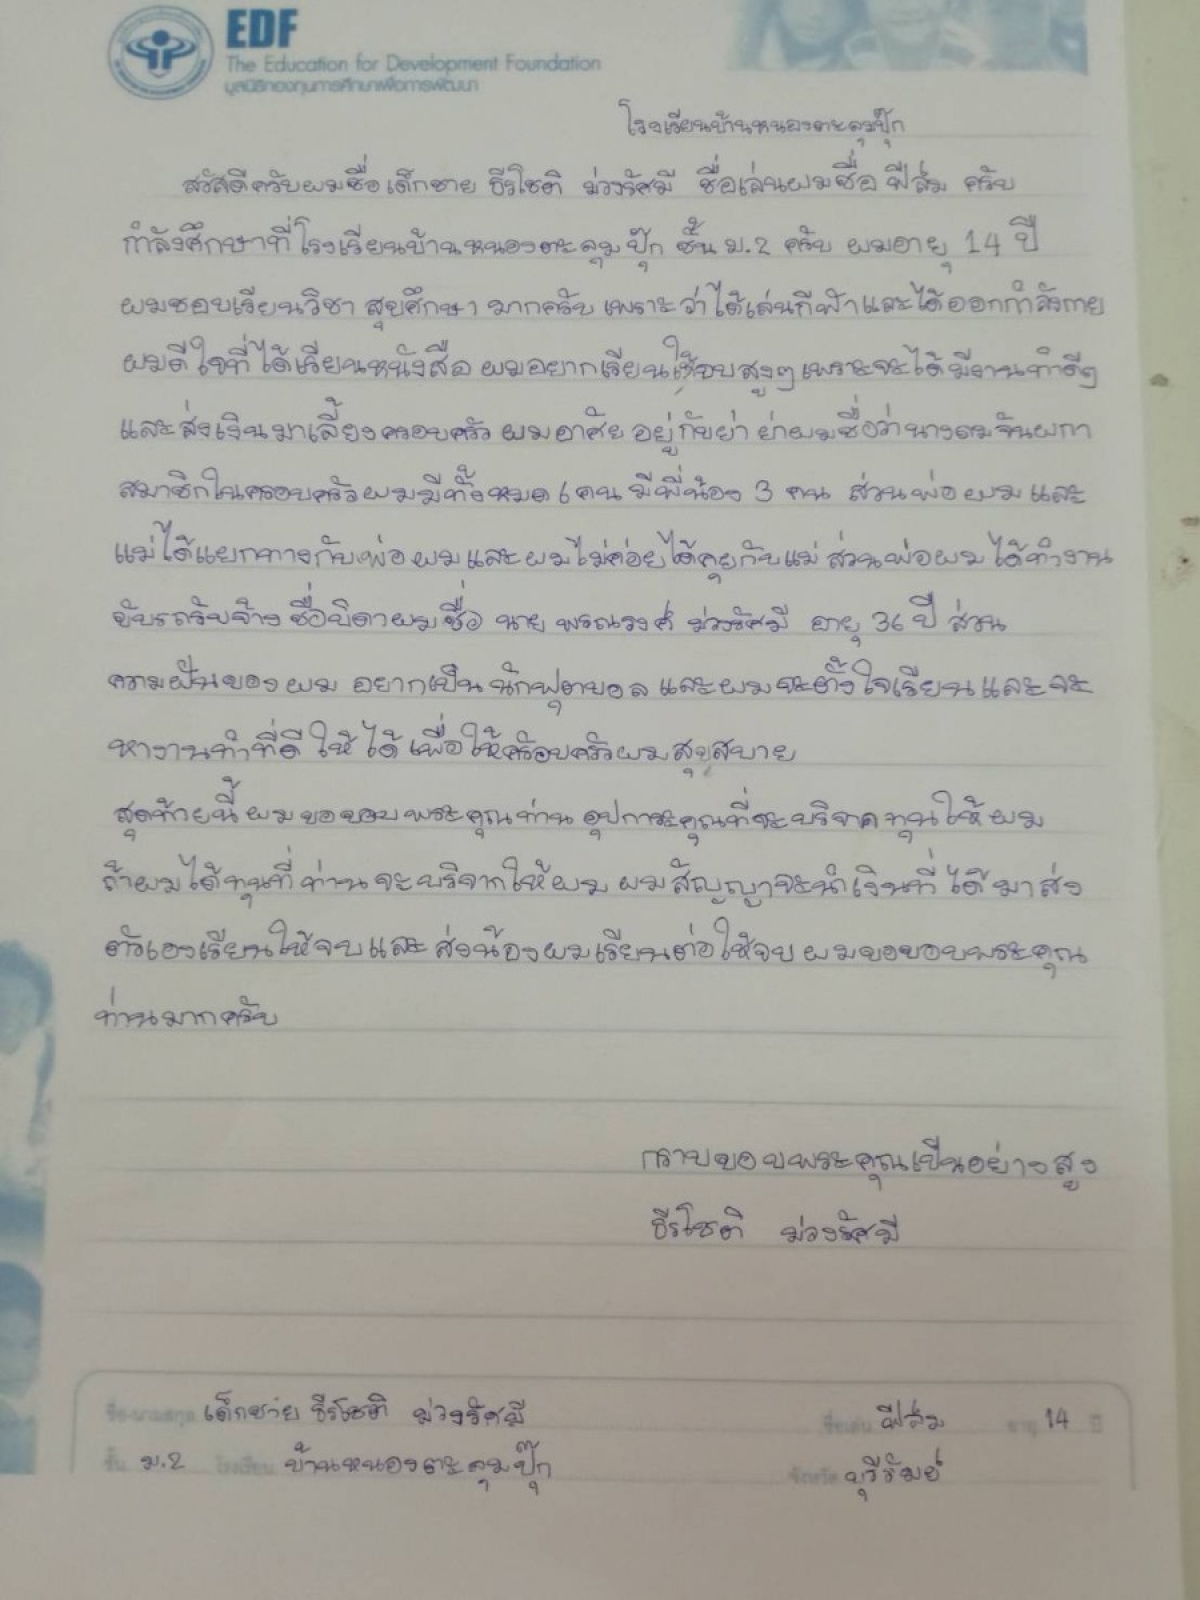 EDF
The Education for Development Foundation
มูลนิธิกองทุนการศึกษาเพื่อการพัฒนา
โรงเรียนบ้านหนองตะลุมปุ๊ก
สวัสดีครับผมชื่อ เด็กชาย ธีรโชติ ม่วงรัศมี ชื่อเล่นผมชื่อ ฟิล์ม ครับ
กำลังศึกษาที่โรงเรียนบ้านหนองตะลุมปุ๊ก ชั้น ม.2 ครับ ผมอายุ 14 ปี
ผมชอบเรียนวิชา สุขศึกษา มากครับ เพราะว่าได้เล่นกีฬาและได้ออกกำลังกาย
ผมดีใจที่ได้เรียนหนังสือ ผมอยากเรียนให้จบสูงๆ เพราะจะได้มีงานทำดีๆ
และส่งเงินมาเลี้ยงครอบครัว ผมอาศัย อยู่กับย่า ย่าผมชื่อว่านางถมจันผกา
สมาชิกในครอบครัวผมมีทั้งหมด 6 คน มีพี่น้อง 3 คน ส่วนพ่อ ผม และ
แม่ได้แยกทางกับพ่อ ผม และ ผมไม่ค่อยได้คุยกับแม่ ส่วนพ่อผมได้ทำงาน
ขับรถรับจ้าง ชื่อบิดาผมชื่อ นาย พรณรงศ์ ม่วงรัศมี อายุ 36 ปี ส่วน
ความฝันของ ผม อยากเป็น นักฟุตบอล และผมจะตั้งใจเรียน และ จะ
หางานทำที่ดี ให้ได้ เพื่อให้ครอบครัวผมสุขสบาย
สุดท้ายนี้ ผม ขอขอบ พระคุณ ท่าน อุปการะคุณที่จะบริจาค ทุนให้ ผม
ถ้าผมได้ทุนที่ ท่าน จะบริจาคให้ผม ผมสัญญาจะนำเงินที่ ได้ มาส่ง
ตัวเองเรียนให้จบ และ ส่งน้องผมเรียนต่อให้จบ ผมขอขอบพระคุณ
ท่านมากครับ
กราบขอบพระคุณเป็นอย่างสูง
ธีรโชติ ม่วงรัศมี
ชื่อ-นามสกุล เด็กชาย ธีรโชติ ม่วงรัศมี ชื่อเล่น ฟิล์ม อายุ 14 ปี
ชั้น ม.2 โรงเรียน บ้านหนองตะลุมปุ๊ก จังหวัด บุรีรัมย์